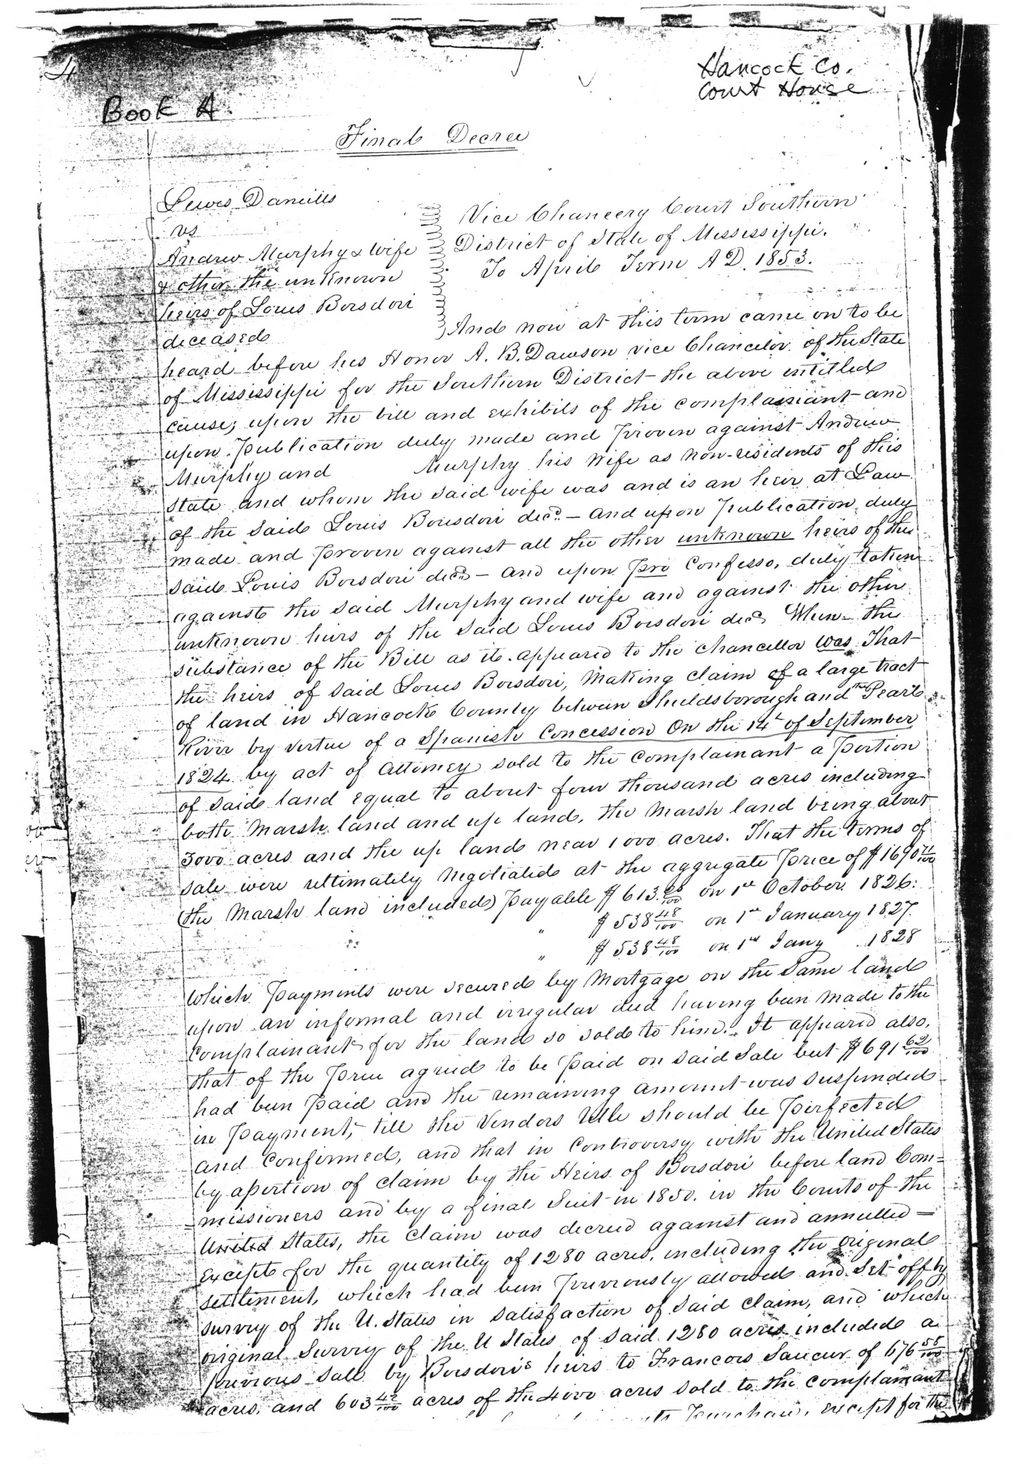 4
Hancock Co.
Court House
Book A
Final Decree
Lewis Daniells
vs
Andrew Murphy & Wife
& other the unknown
heirs of Louis Boisdori
deceased
Vice Chancery Court Southern
District of State of Mississippi.
To April Term A D. 1853.
And now at this term came on to be
heard before his Honor A. B. Dawson vice Chancelor of the State
of Mississippi for the Southern District the above entitled
cause; upon the bill and exhibits of the complainant and
upon Publication duly made and proven against Andrew
Murphy and Murphy his wife as non-residents of this
State and whom the said wife was and is an heir at Law
of the said Louis Boisdori decd. - and upon publication duly
made and proven against all the other unknown heirs of the
said Louis Boisdori decd - and upon pro confesso, duly taken
against the said Murphy and wife and against the other
unknown heirs of the said Louis Boisdori decd. When the
substance of the Bill as it appeared to the chancellor was That
the heirs of said Louis Boisdori, making claim of a large tract
of land in Hancock County between Shieldsborough and the Pearl
River by virtue of a Spanish Concession On the 14t of September
1824 by act of Attorney sold to the complainant a Portion
of said land equal to about four thousand acres including
both marsh land and up land, the marsh land being about
3000 acres and the up land near 1000 acres. That the terms of
sale were ultimately negotiated at the aggregate price of $1690 71/100
(the marsh land included) payable $613 on 1st October 1826:
" $538 48/100 on 1st January 1827.
" $538 48/100 on 1st Jany 1828
Which payments were secured by mortgage on the same land
upon an informal and irregular deed having been made to the
complainant for the land so sold to him. It appeared also,
that of the Price agreed to be paid on said Sale but $691 62/100
had been paid and the remaining amount was suspended
in payment, till the Vendors title should be perfected
and confirmed, and that in controversy with the United States
by a portion of claim by the Heirs of Boisdori before land Com=
missioners and by a final Suit in 1850. in the Courts of the
United States, the claim was decreed against and annulled -
except for the quantity of 1280 acres, including the original
settlement, which had been previously allowed and Set off by
survey of the U. States in satisfaction of said claim, and which
original Survey of the U States of said 1280 acres included a
previous sale by Boisdori's heirs to Francois Saucier of 676 58/100
acres, and 603 42/100 acres of the 4000 acres sold to the complainant
except for the